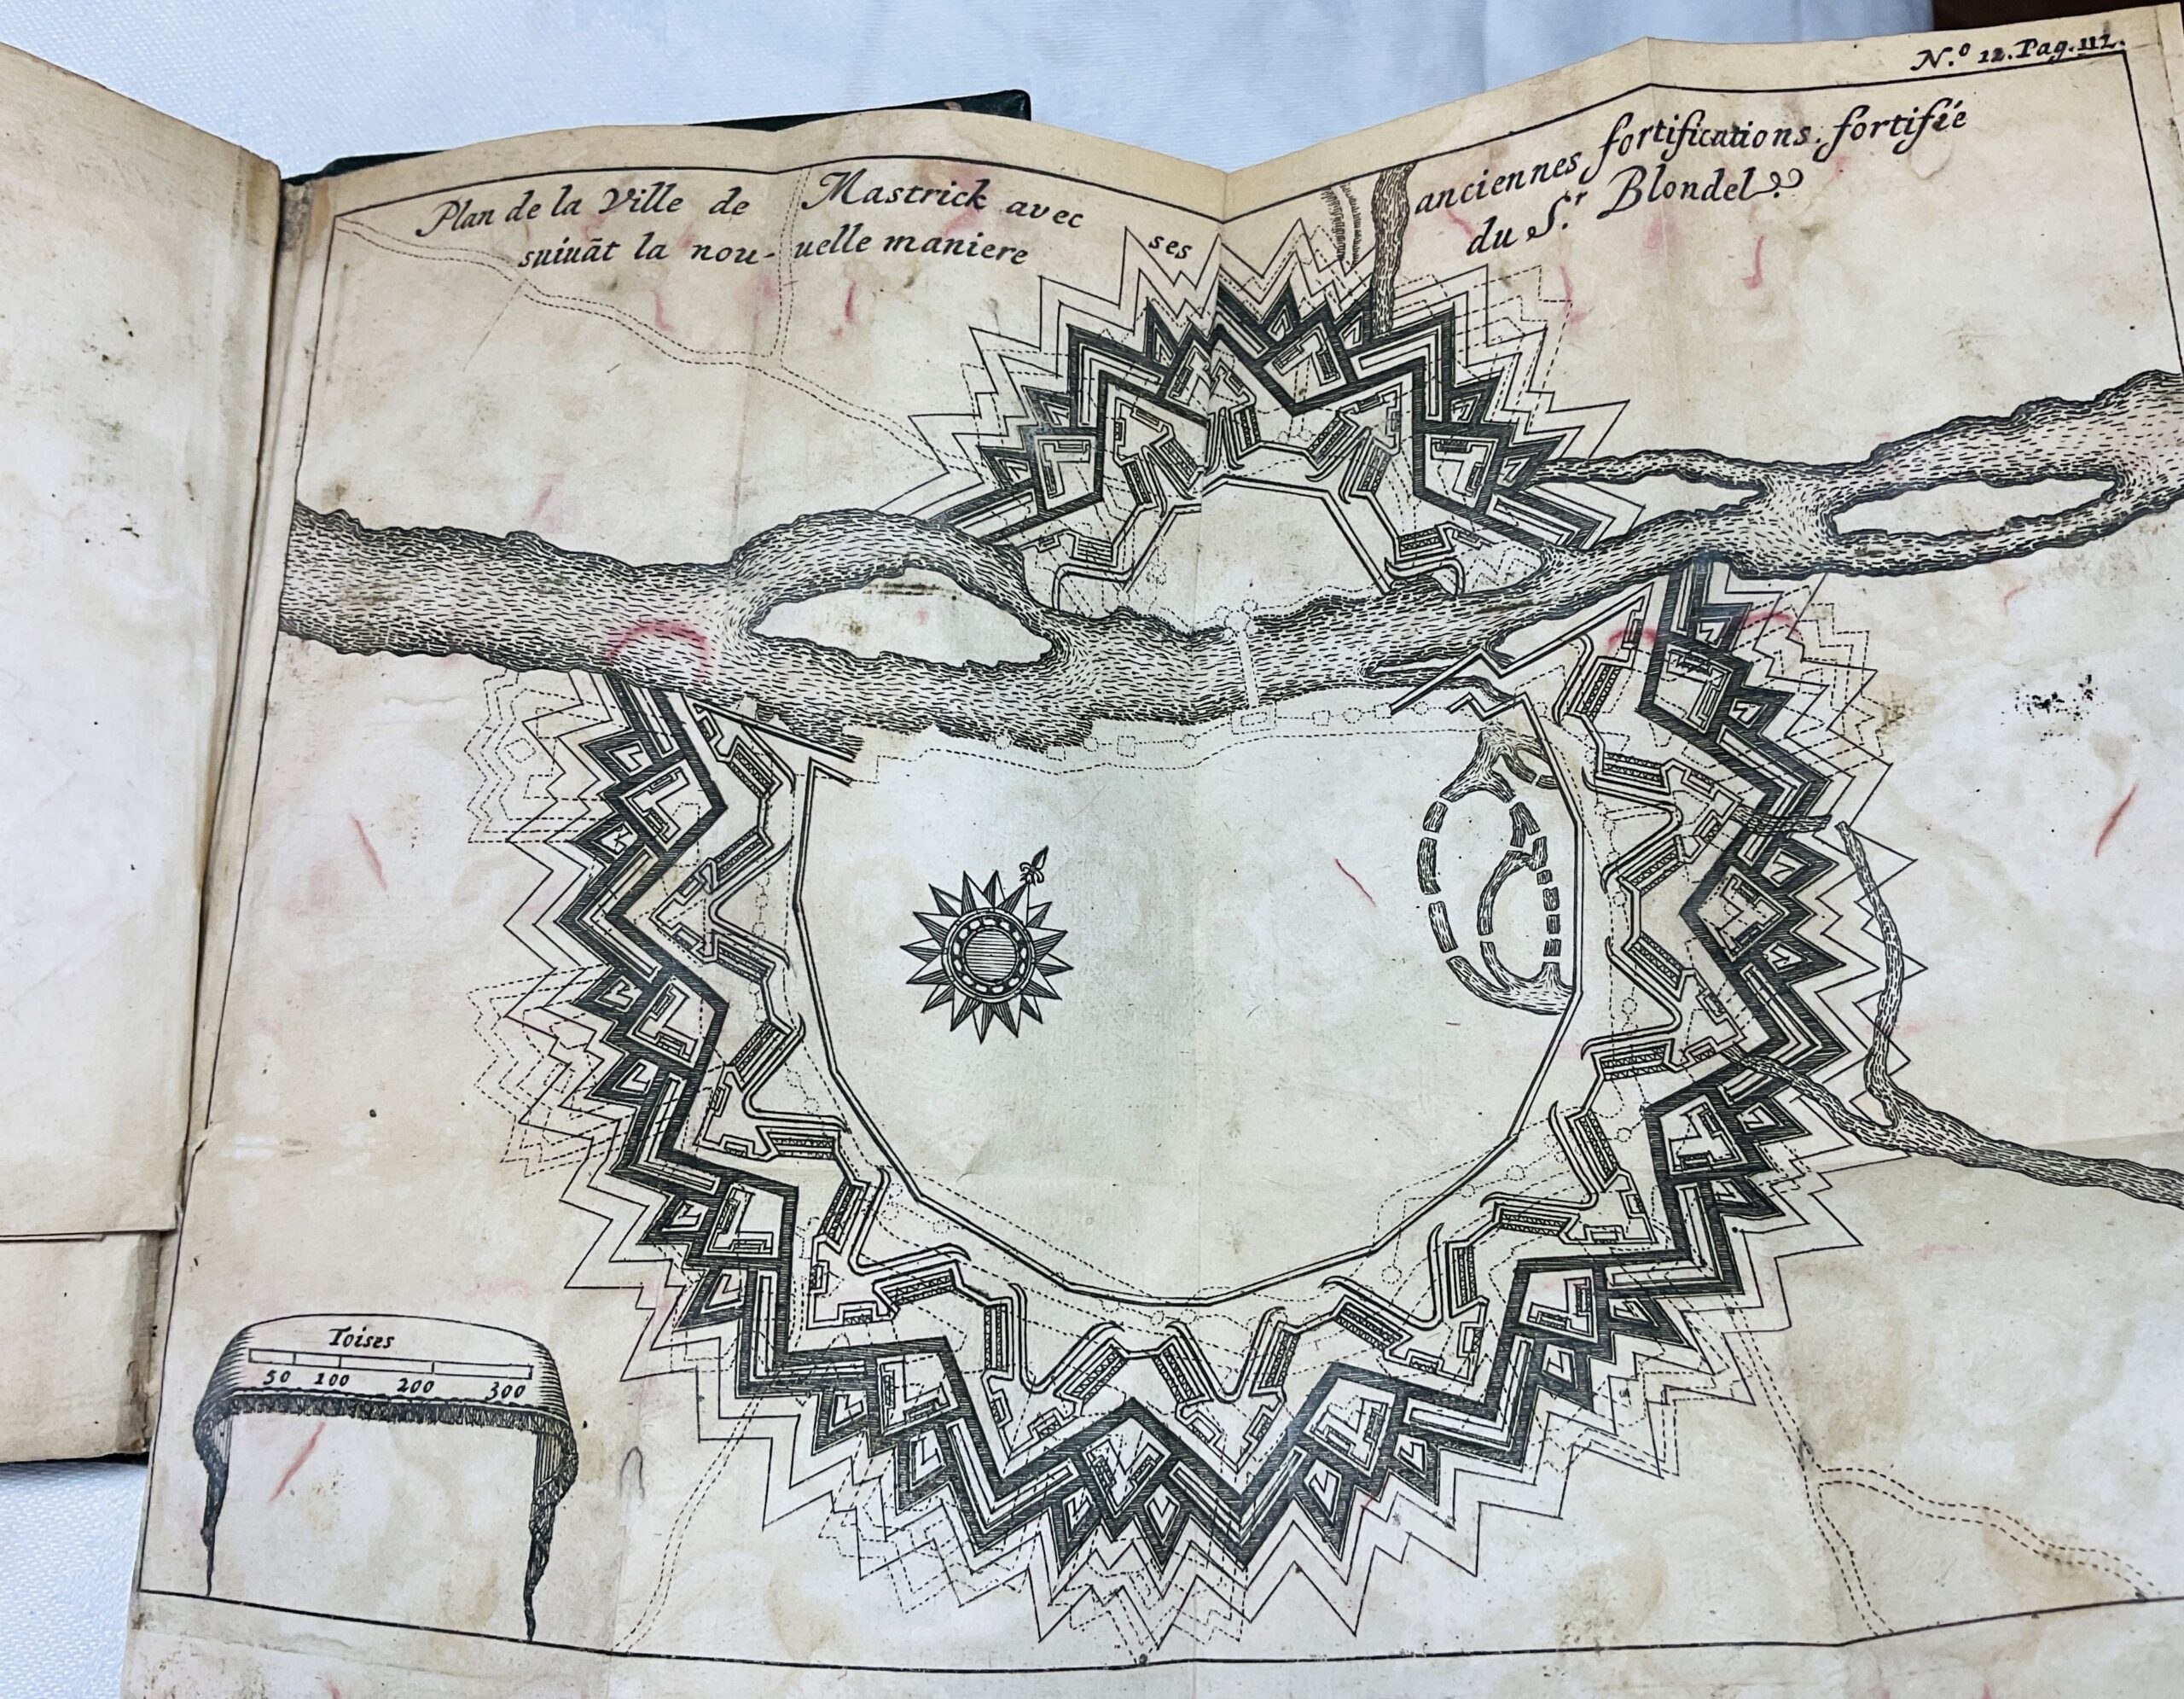 N.º 12. Pag. 112.
Plan de la Ville de Mastrick avec ses anciennes fortifications fortifiée
suiuāt la nou-uelle maniere du S.r Blondel
Toises
50 100 200 300